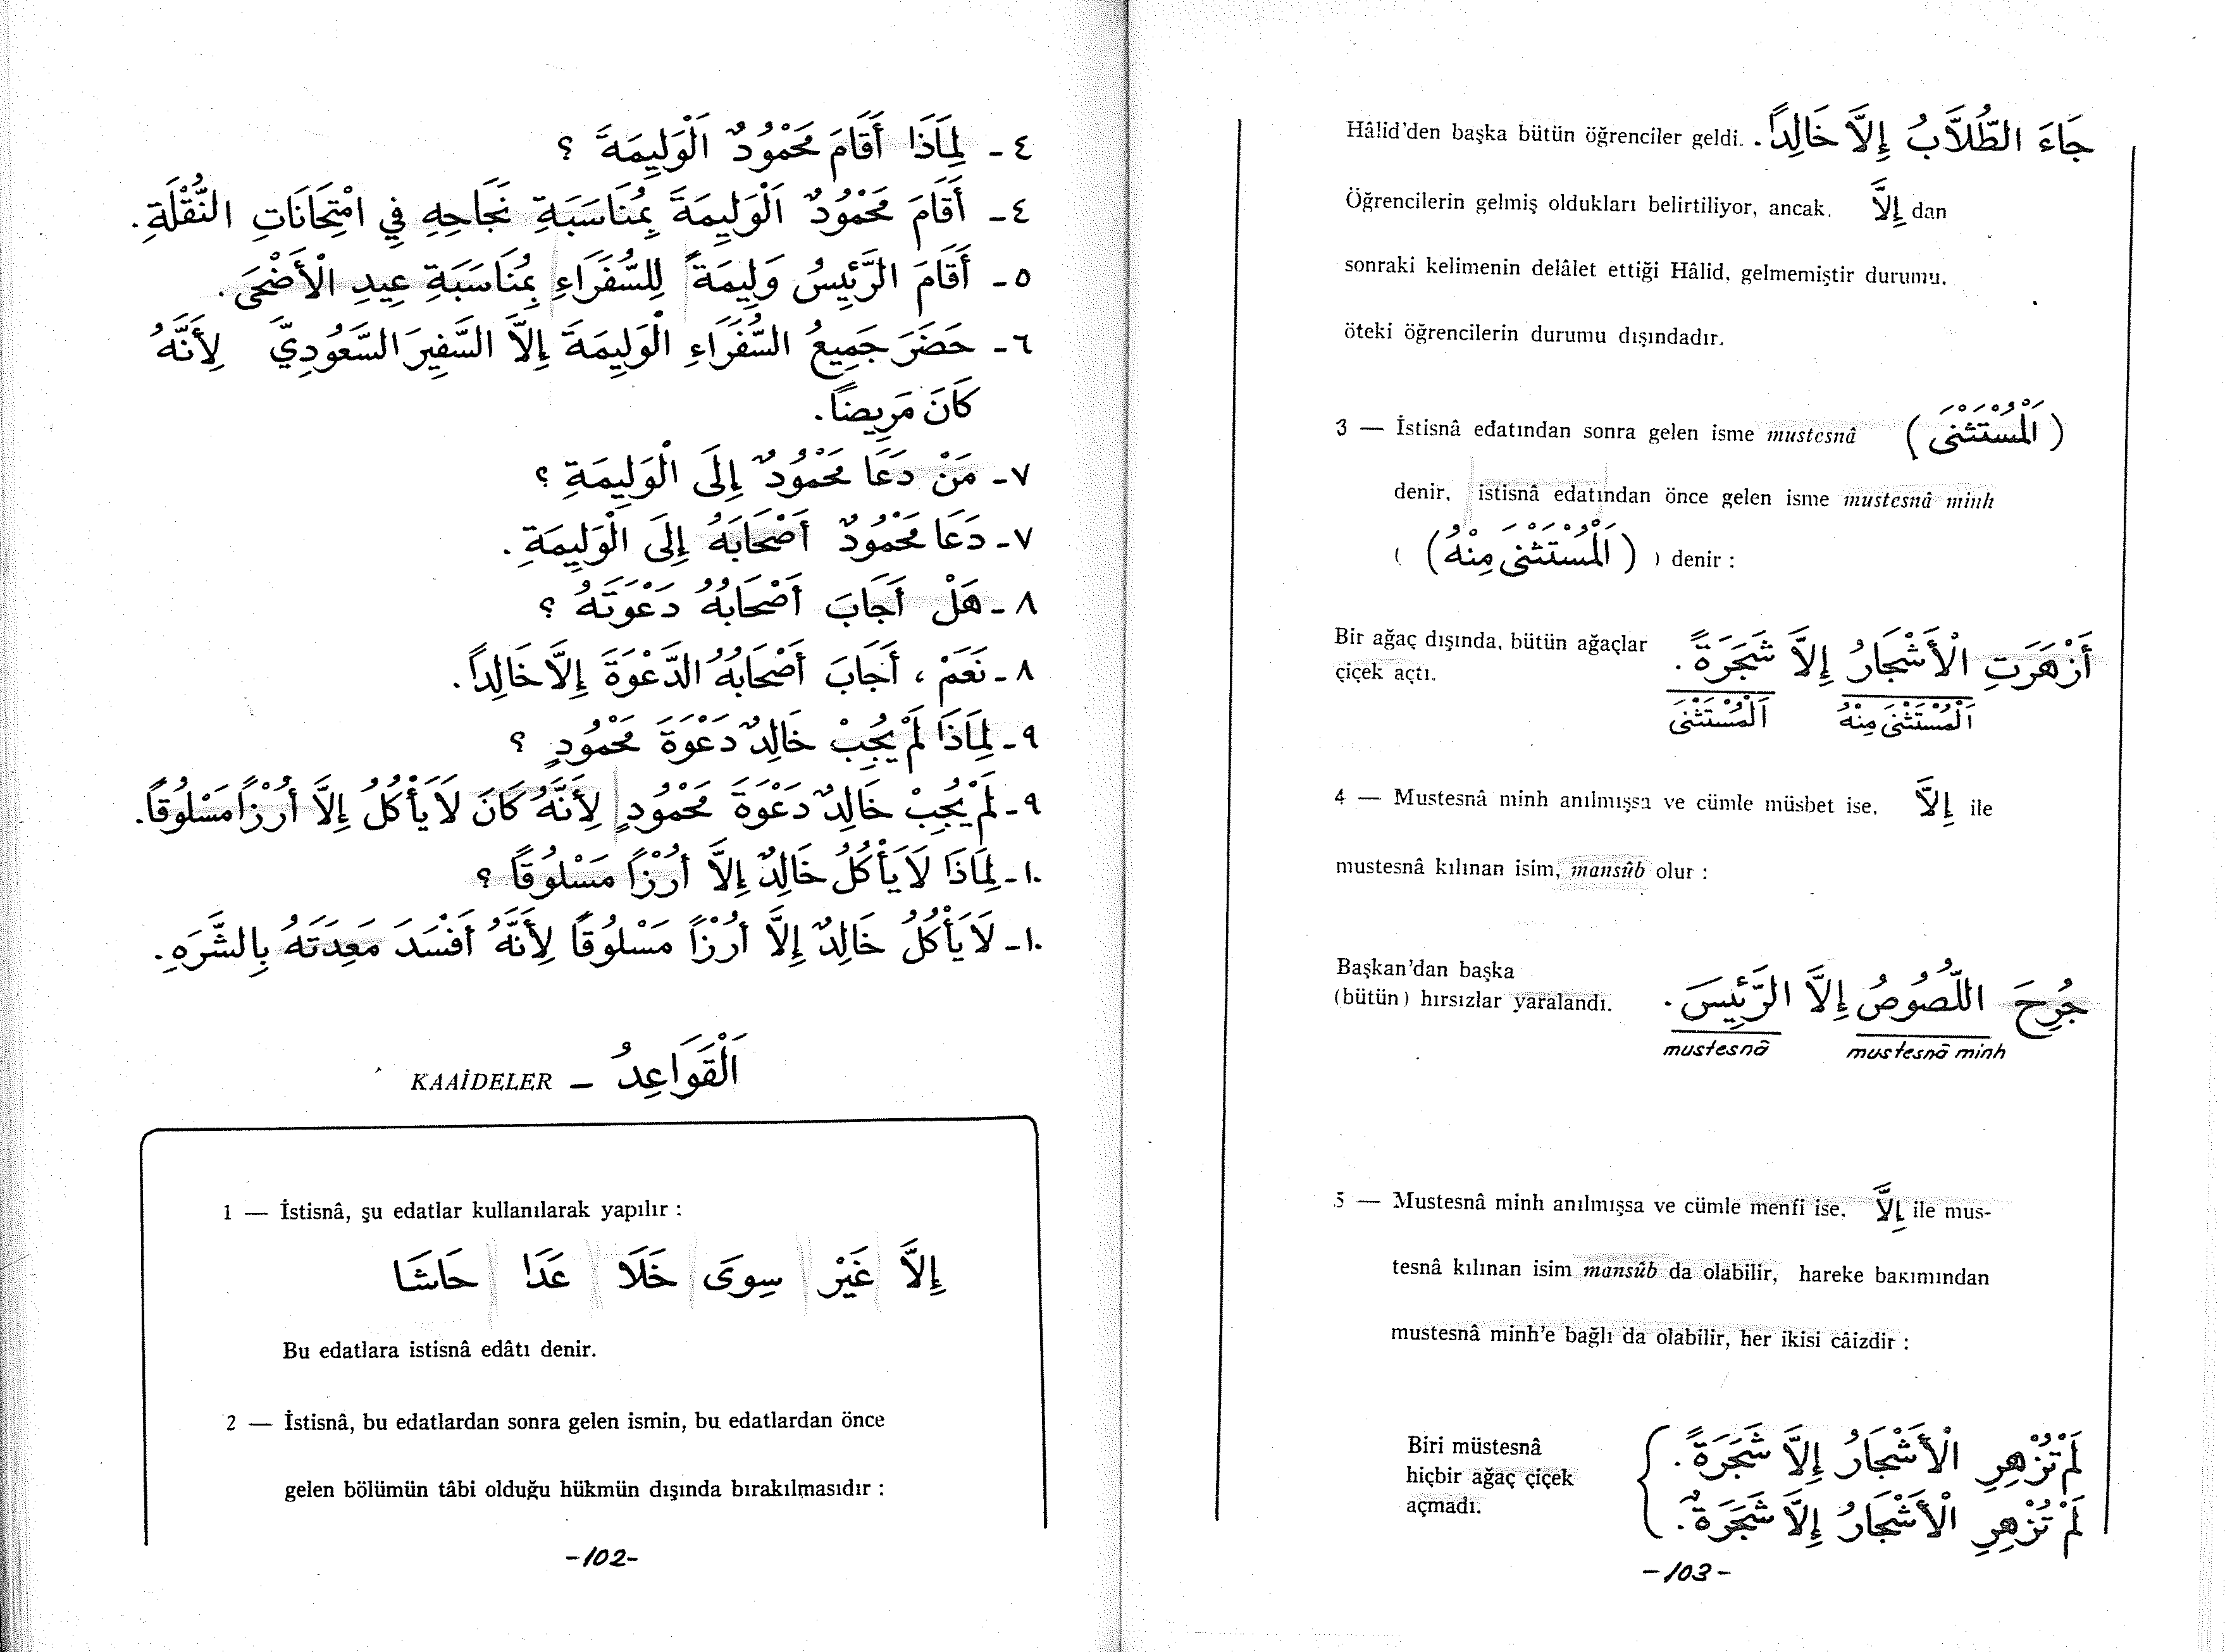 ٤ - لِمَاذَا أَقَامَ مَحْمُودٌ الْوَلِيمَةَ ؟
٤ - أَقَامَ مَحْمُودٌ الْوَلِيمَةَ بِمُنَاسَبَةِ نَجَاحِهِ فِي امْتِحَانَاتِ النُّقْلَةِ.
٥ - أَقَامَ الرَّئِيسُ وَلِيمَةً لِلسُّفَرَاءِ بِمُنَاسَبَةِ عِيدِ الْأَضْحَى.
٦ - حَضَرَ جَمِيعُ السُّفَرَاءِ الْوَلِيمَةَ إِلاَّ السَّفِيرَ السَّعُودِيَّ لِأَنَّهُ
كَانَ مَرِيضاً.
٧ - مَنْ دَعَا مَحْمُودٌ إِلَى الْوَلِيمَةِ ؟
٧ - دَعَا مَحْمُودٌ أَصْحَابَهُ إِلَى الْوَلِيمَةِ.
٨ - هَلْ أَجَابَ أَصْحَابُهُ دَعْوَتَهُ ؟
٨ - نَعَمْ ، أَجَابَ أَصْحَابُهُ الدَّعْوَةَ إِلاَّ خَالِداً.
٩ - لِمَاذَا لَمْ يُجِبْ خَالِدٌ دَعْوَةَ مَحْمُودٍ ؟
٩ - لَمْ يُجِبْ خَالِدٌ دَعْوَةَ مَحْمُودٍ لِأَنَّهُ كَانَ لاَ يَأْكُلُ إِلاَّ أُرْزاً مَسْلُوقاً.
١٠ - لِمَاذَا لاَ يَأْكُلُ خَالِدٌ إِلاَّ أُرْزاً مَسْلُوقاً ؟
١٠ - لاَ يَأْكُلُ خَالِدٌ إِلاَّ أُرْزاً مَسْلُوقاً لِأَنَّهُ أَفْسَدَ مَعِدَتَهُ بِالشَّرَهِ.
KAAİDELER – اَلْقَوَاعِدُ
1 — İstisnâ, şu edatlar kullanılarak yapılır :
إِلاَّ غَيْرَ سِوَى خَلَا عَدَا حَاشَا
Bu edatlara istisnâ edâtı denir.
2 — İstisnâ, bu edatlardan sonra gelen ismin, bu edatlardan önce
gelen bölümün tâbi olduğu hükmün dışında bırakılmasıdır :
-102-
Hâlid'den başka bütün öğrenciler geldi. جَاءَ الطُّلاَّبُ إِلاَّ خَالِداً.
Öğrencilerin gelmiş oldukları belirtiliyor, ancak. إِلاَّ dan
sonraki kelimenin delâlet ettiği Hâlid, gelmemiştir durumu.
öteki öğrencilerin durumu dışındadır.
3 — İstisnâ edatından sonra gelen isme mustesnâ (اَلْمُسْتَثْنَى)
denir, istisnâ edatından önce gelen isme mustesnâ minh
( (اَلْمُسْتَثْنَى مِنْهُ) ) denir :
Bir ağaç dışında, bütün ağaçlar
çiçek açtı.
أَزْهَرَتِ الْأَشْجَارُ إِلاَّ شَجَرَةً.
اَلْمُسْتَثْنَى مِنْهُ اَلْمُسْتَثْنَى
4 — Mustesnâ minh anılmışsa ve cümle müsbet ise, إِلاَّ ile
mustesnâ kılınan isim, mansûb olur :
Başkan'dan başka
(bütün) hırsızlar yaralandı.
جُرِحَ اللُّصُوصُ إِلاَّ الرَّئِيسَ.
mustesnâ mustesnâ minh
5 — Mustesnâ minh anılmışsa ve cümle menfi ise. إِلاَّ ile mus-
tesnâ kılınan isim mansûb da olabilir, hareke bakımından
mustesnâ minh'e bağlı da olabilir, her ikisi câizdir :
Biri müstesnâ
hiçbir ağaç çiçek
açmadı.
لَمْ تُزْهِرِ الْأَشْجَارُ إِلاَّ شَجَرَةً.
لَمْ تُزْهِرِ الْأَشْجَارُ إِلاَّ شَجَرَةٌ.
-103-